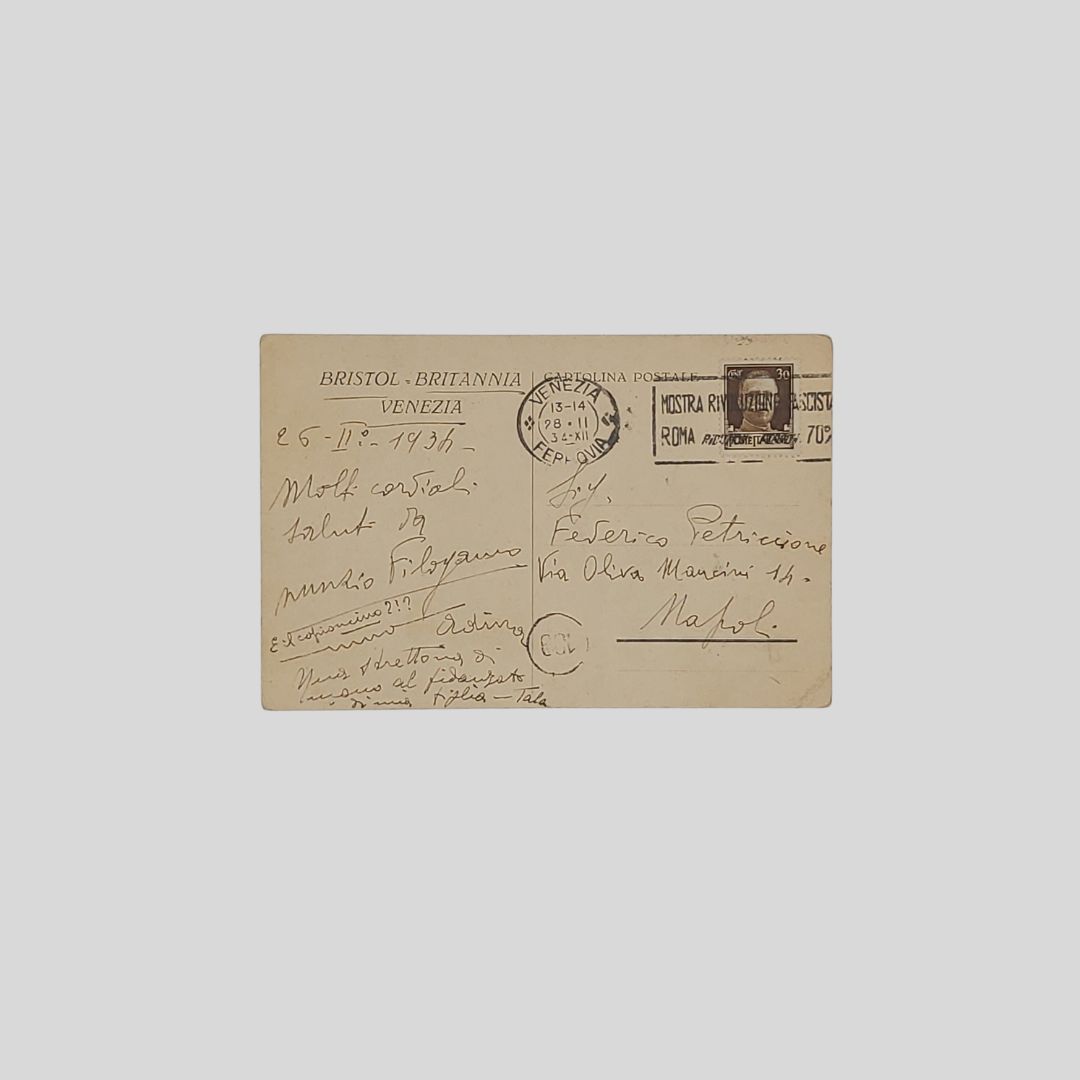 BRISTOL - BRITANNIA
VENEZIA
26 - II° - 1934 -
Molti cordiali
saluti da
nunzio Filogamo
E il copioncino?!?
Adina
Una strettina di
mano al fidanzato
di mia figlia - Tala
CARTOLINA POSTALE
VENEZIA
13-14
28 • II
34-XII
FERROVIA
MOSTRA RIVOLUZIONE FASCISTA
ROMA 70%
30
Sig.
Federico Petriccione
Via Oliva Mancini 14 -
Napoli